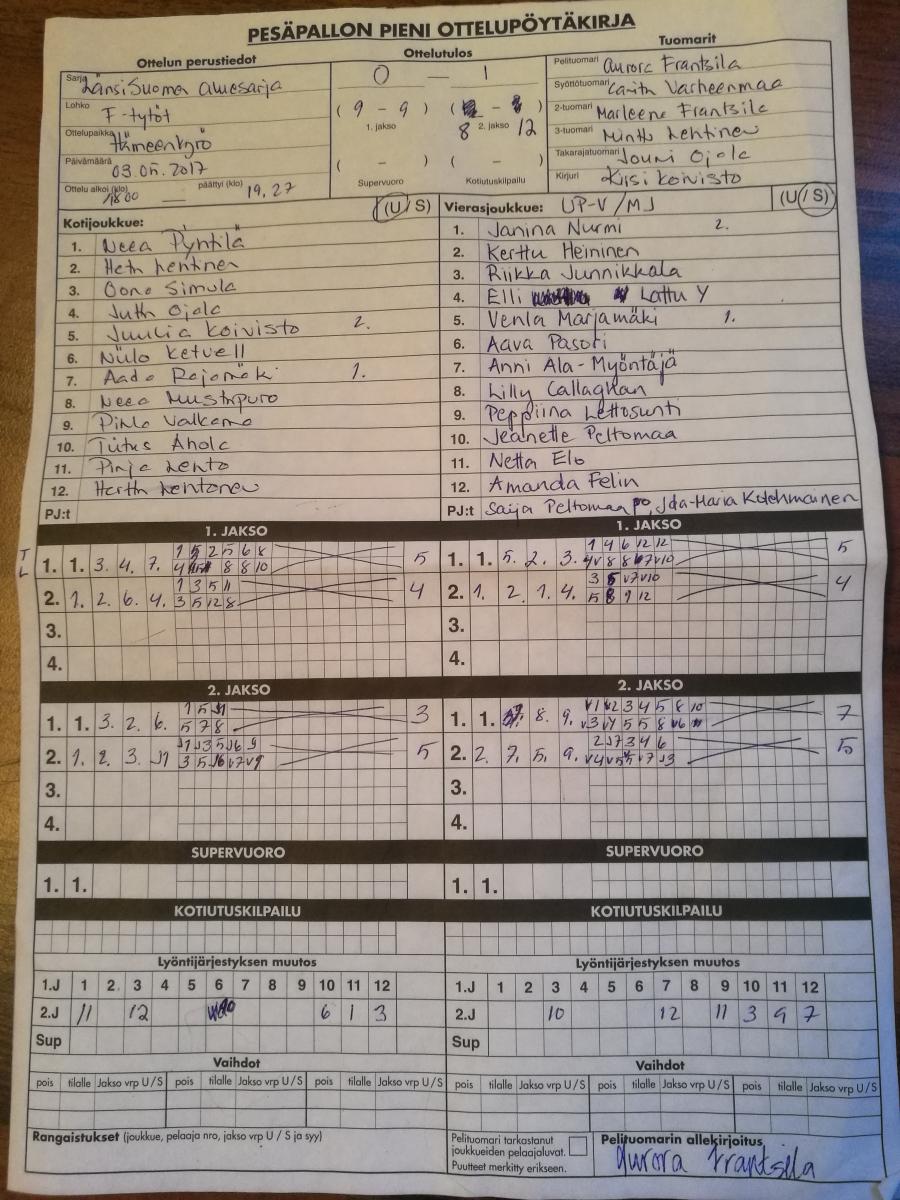 PESÄPALLON PIENI OTTELUPÖYTÄKIRJA
Ottelun perustiedot
Ottelutulos
Tuomarit
Sarja LänsiSuomen aluesarja
0 — 1
Pelituomari Aurora Frantsila
Syöttötuomari Varheenmaa
Lohko F-tytöt
( 9 - 9 ) ( - )
2-tuomari Marleene Frantsila
1. jakso 8 2. jakso 12
Ottelupaikka Hämeenkyrö
3-tuomari Minttu Lehtinen
Päivämäärä 03.05.2017
( - ) ( - )
Takarajatuomari Jouni Ojala
Ottelu alkoi (klo) 18.00 — päättyi (klo) 19.27
Supervuoro Kotiutuskilpailu
Kirjuri Kirsi Koivisto
Kotijoukkue: (U / S)
Vierasjoukkue: UP-V / MJ (U / S)
1. Neea Pyntilä
1. Janina Nurmi 2.
2. Heta Lehtinen
2. Kerttu Heininen
3. Oona Simula
3. Riikka Junnikkala
4. Jutta Ojala
4. Elli Lattu Y
5. Juulia Koivisto 2.
5. Venla Marjamäki 1.
6. Niilo Ketvell
6. Aava Pasori
7. Aada Rajamäki 1.
7. Anni Ala-Myöntäjä
8. Neea Mustapuro
8. Lilly Callaghan
9. Valkama
9. Peppiina Lettosunti
10. Tiitus Ahola
10. Jeanette Peltomaa
11. Pinja Lehto
11. Netta Elo
12. Hertta Lehtonen
12. Amanda Felin
PJ:t
PJ:t Saija Peltomaa Ida-Maria Kolehmainen
1. JAKSO
1. JAKSO
T
L
1. 1. 3. 4. 7. 1 5 2 5 6 8 5
4 8 8 10
1. 1. 5. 2. 3. 1 4 6 12 12 5
4v 8 8 v7 v10
2. 1. 2. 6. 4. 1 3 5 11 4
3 5 12 8
2. 1. 2. 1. 4. 3 5 v7 v10 4
5 8 9 12
3.
3.
4.
4.
2. JAKSO
2. JAKSO
1. 1. 3. 2. 6. 1 5 J1 3
5 7 8
1. 1. 8. 9. v1 v2 3 4 5 8 10 7
v3 v4 5 5 8 v6
2. 1. 2. 3. J1 J1 J3 5 J6 9 5
3 5 J6 v7 v9
2. 2. 7. 5. 9. 2 J7 3 4 6 5
v4 v5 v7 J3
3.
3.
4.
4.
SUPERVUORO
SUPERVUORO
1. 1.
1. 1.
KOTIUTUSKILPAILU
KOTIUTUSKILPAILU
Lyöntijärjestyksen muutos
Lyöntijärjestyksen muutos
1.J 1 2 3 4 5 6 7 8 9 10 11 12
1.J 1 2 3 4 5 6 7 8 9 10 11 12
2.J 11 12 6 1 3
2.J 10 12 11 3 9 7
Sup
Sup
Vaihdot
Vaihdot
pois tilalle Jakso vrp U / S pois tilalle Jakso vrp U / S pois tilalle Jakso vrp U / S
pois tilalle Jakso vrp U / S pois tilalle Jakso vrp U / S pois tilalle Jakso vrp U / S
Rangaistukset (joukkue, pelaaja nro, jakso vrp U / S ja syy)
Pelituomari tarkastanut
joukkueiden pelaajaluvat.
Puutteet merkitty erikseen.
Pelituomarin allekirjoitus
Aurora Frantsila